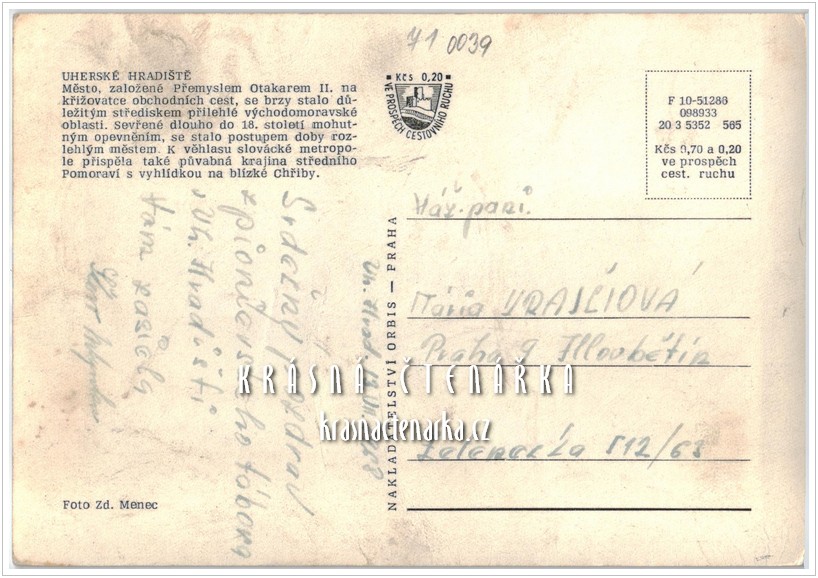 71 0039
UHERSKÉ HRADIŠTĚ
Město, založené Přemyslem Otakarem II. na
křižovatce obchodních cest, se brzy stalo dů-
ležitým střediskem přilehlé východomoravské
oblasti. Sevřené dlouho do 18. století mohut-
ným opevněním, se stalo postupem doby roz-
lehlým městem. K věhlasu slovácké metropo-
le přispěla také půvabná krajina středního
Pomoraví s vyhlídkou na blízké Chřiby.
Kčs 0,20
VE PROSPĚCH CESTOVNÍHO RUCHU
F 10-51286
098933
20 3 5352 565
Kčs 0,70 a 0,20
ve prospěch
cest. ruchu
Srdečný pozdrav
z pionierskeho tábora
v Uh. Hradišti
Vám zasiela
Váž. pani.
Mária
Praha 9
712/63
NAKLADATELSTVÍ ORBIS — PRAHA
KRÁSNÁ ČTENÁŘKA
krasnactenarka.cz
Foto Zd. Menec